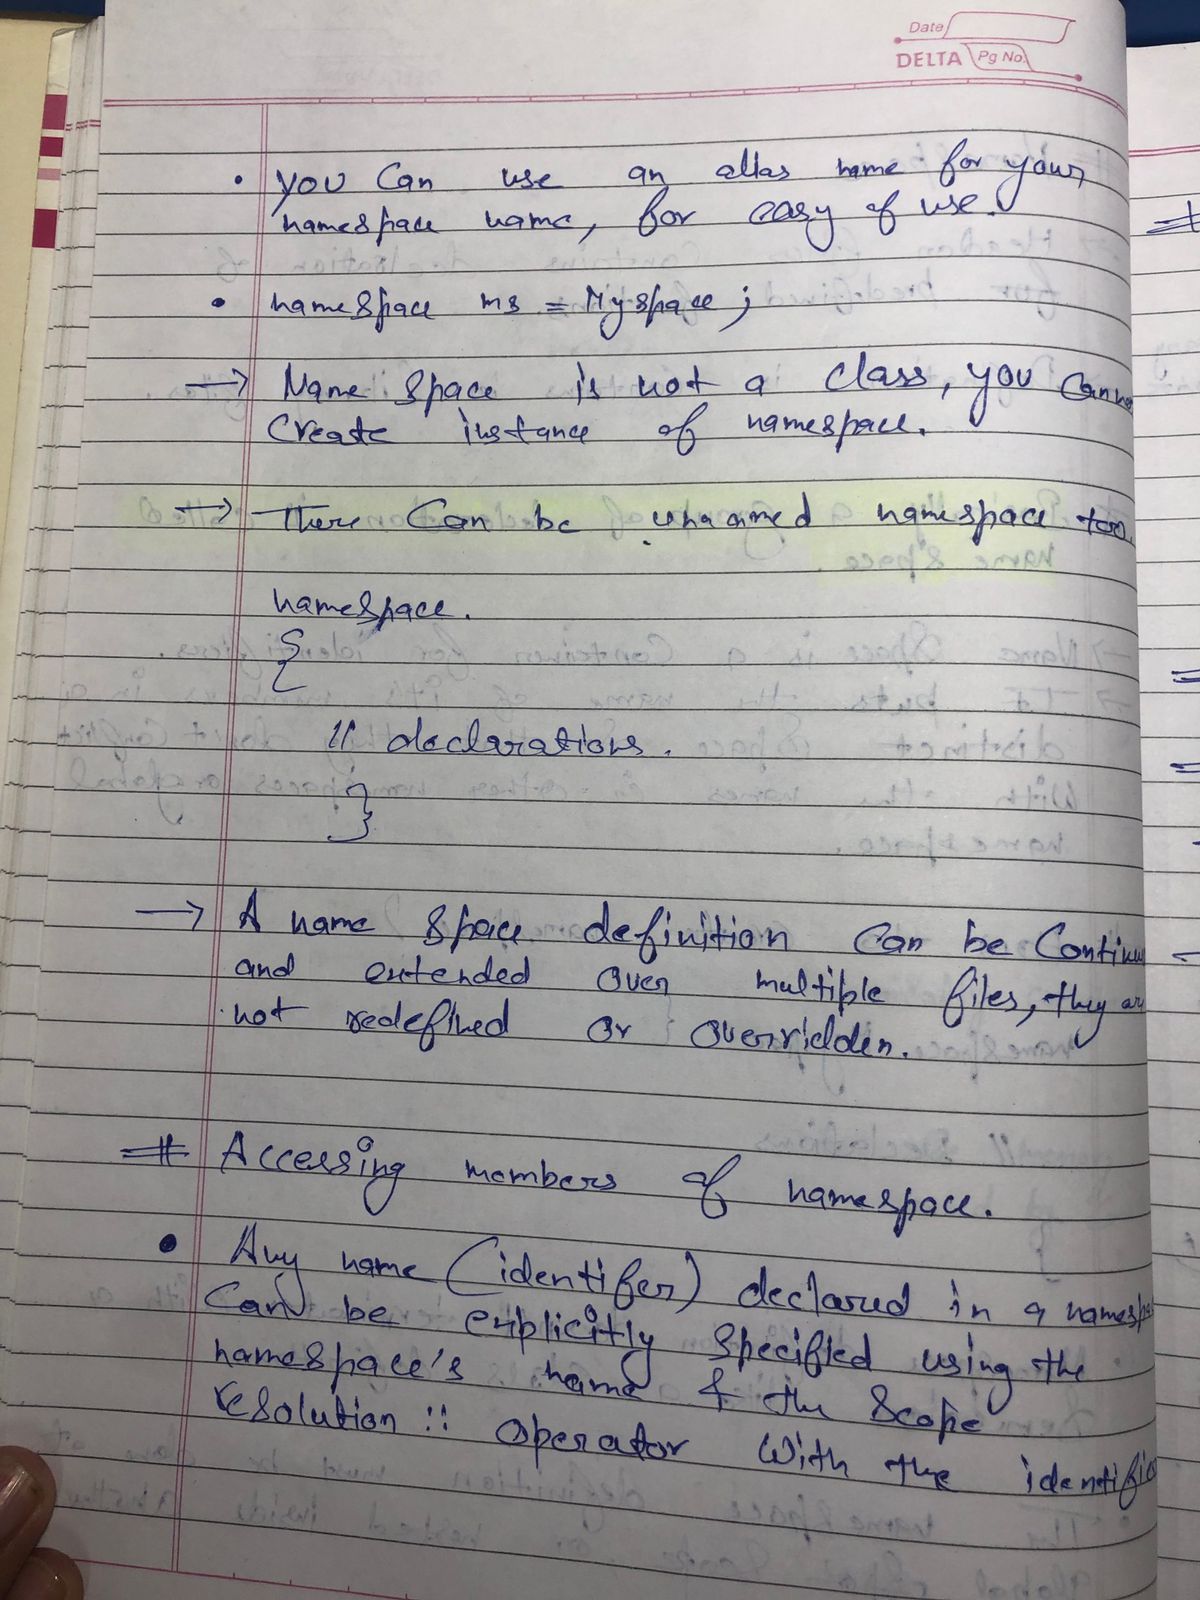 Date
DELTA Pg No.
• you can use an alias name for your
namespace name, for easy of use.
• namespace ms = Myspace;
→ Name space is not a class, you Canno
Create instance of namespace.
→ There Can be unnamed namespace too.
namespace.
{
// declarations.
}
→ A name space definition Can be Continu
and extended over multiple files, they ar
not redefined or overridden.
# Accessing members of namespace.
• Any name (identifer) declared in a namesp
Can be explicitly specified using the
namespace's name & the Scope
resolution :: operator with the identifie